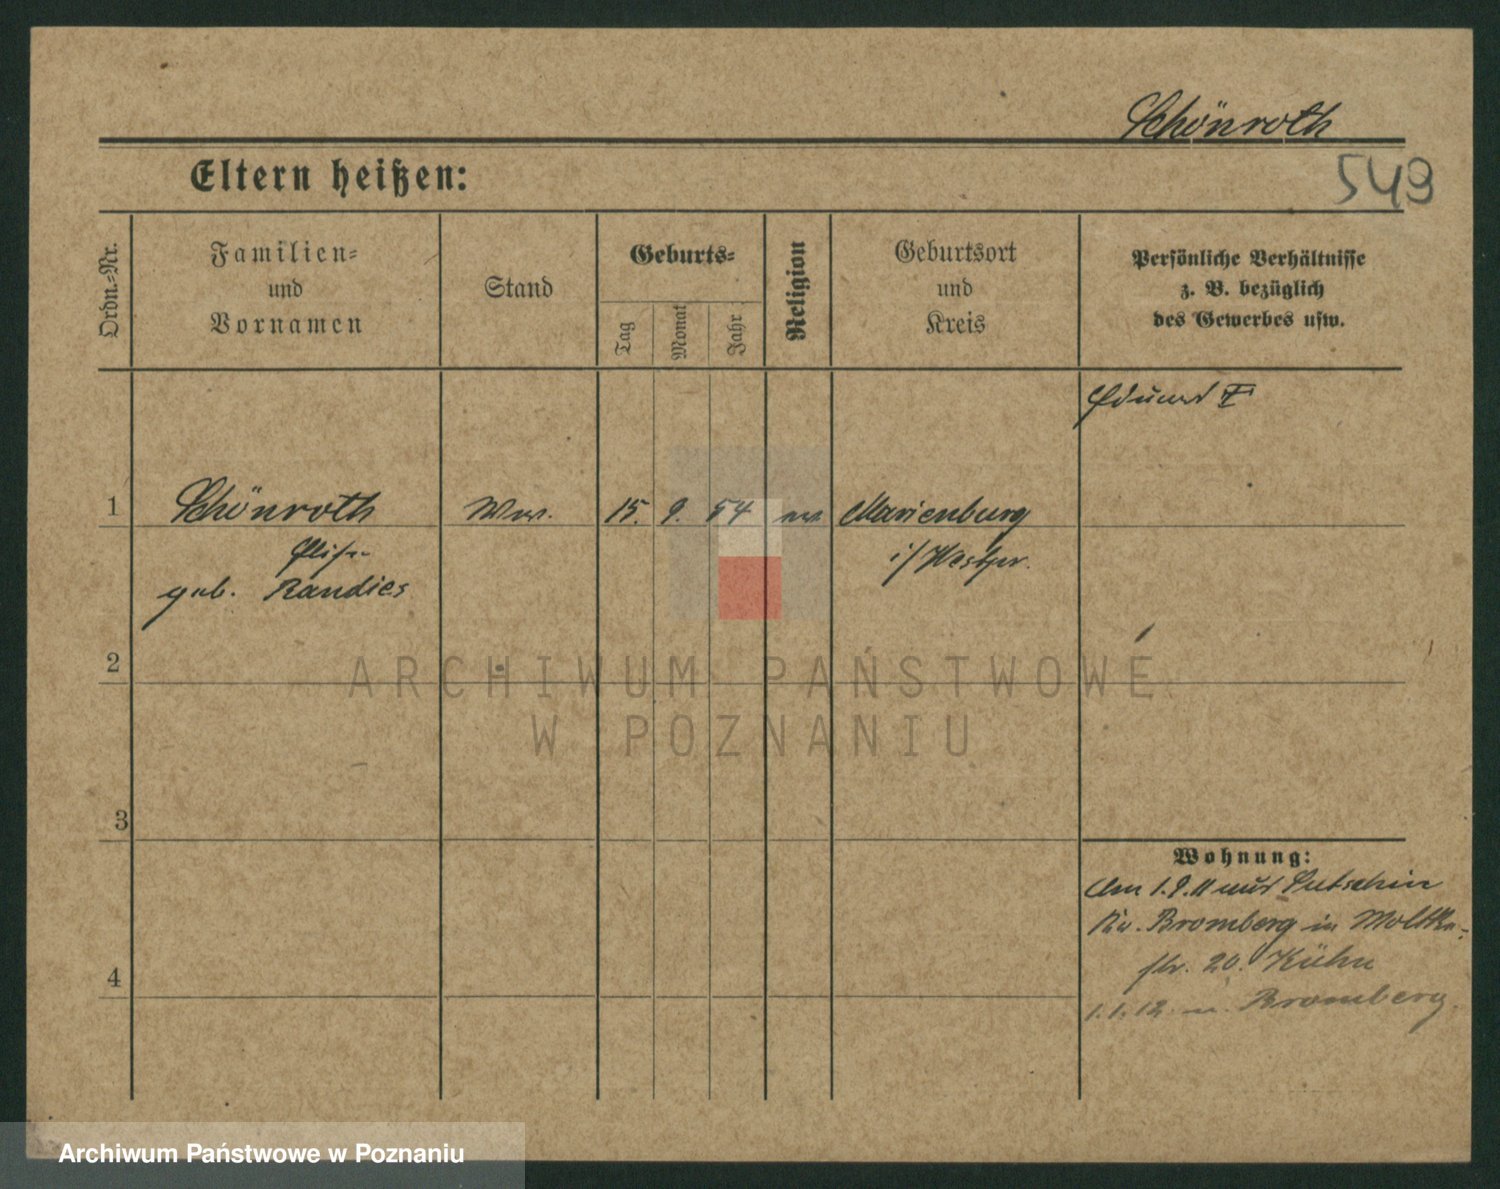 Schönroth
549
Eltern heißen:
Ordn.-Nr.
Familien-
und
Vornamen
Stand
Geburts-
Tag
Monat
Jahr
Religion
Geburtsort
und
Kreis
Persönliche Verhältnisse
z. B. bezüglich
des Gewerbes usw.
Eduard II
1
Schönroth
Ww.
15. 9. 54
ev.
Marienburg
Elise
i/Westpr.
geb. Randies
2
ARCHIWUM PAŃSTWOWE
W POZNANIU
3
Wohnung:
Am 1.9.11 aus
Kr. Bromberg in Moltke-
str. 20. Kühn
4
1.1.12. n. Bromberg.
Archiwum Państwowe w Poznaniu